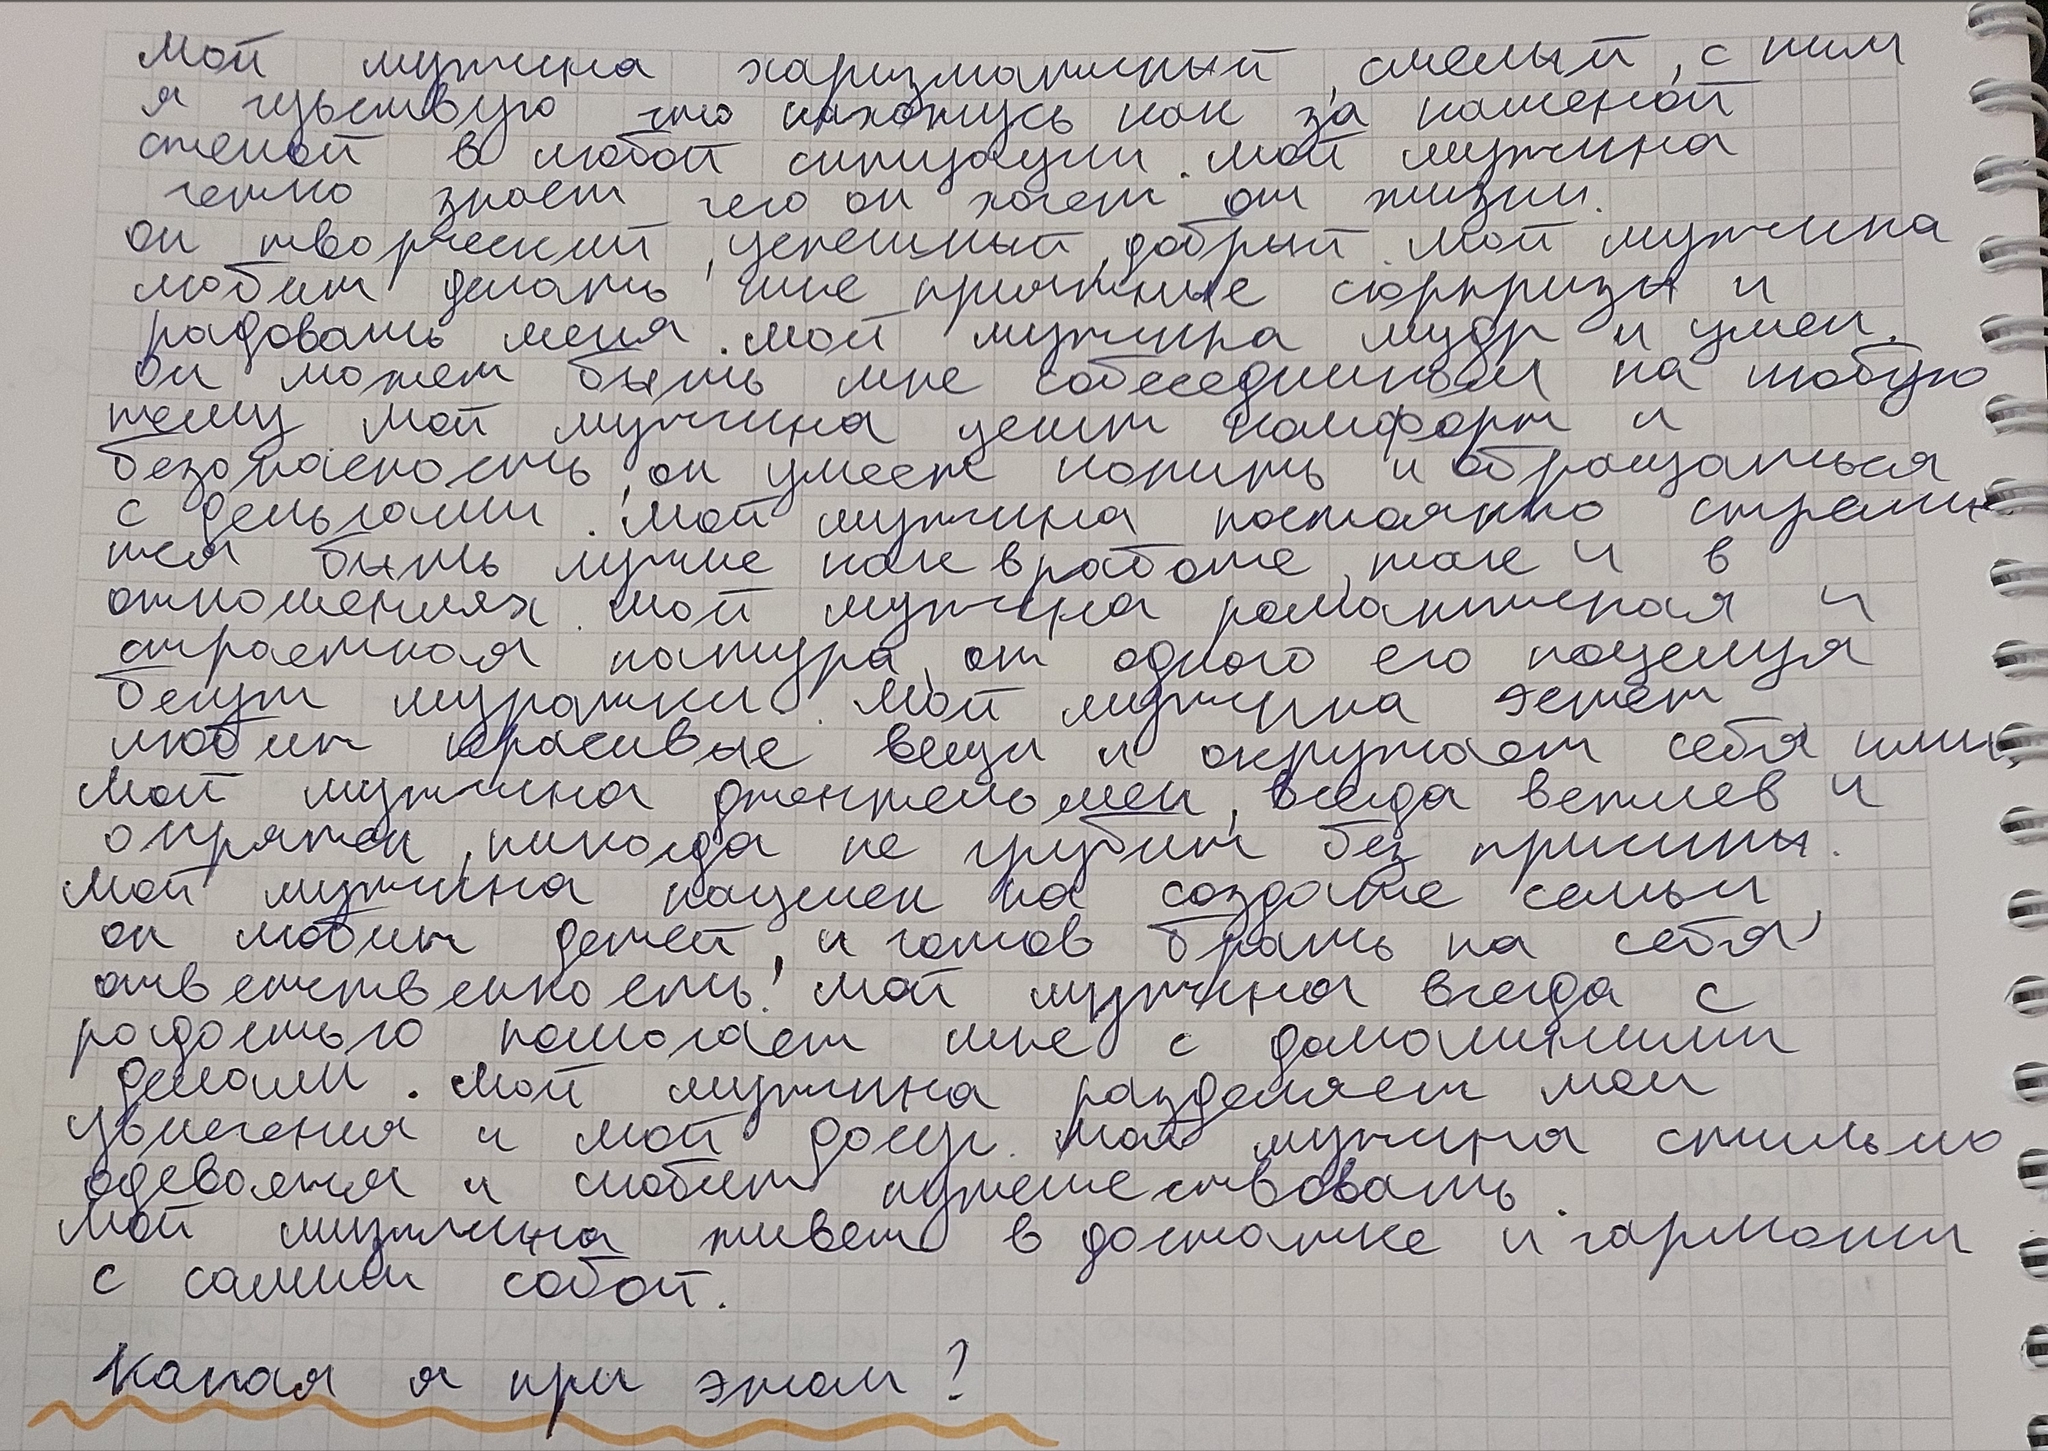 мой мужчина харизматичный, смелый, с ним
я чувствую что нахожусь как за каменой
стеной в любой ситуации. мой мужчина
четко знает чего он хочет от жизни.
он творческий, успешный, добрый. мой мужчина
любит делать мне приятные сюрпризы и
радовать меня. мой мужчина мудр и умен.
он может быть мне собеседником на любую
тему мой мужчина ценит комфорт и
безопасность, он умеет копить и обращаться
с деньгами. мой мужчина постоянно стреми
тся быть лучше как в работе, так и в
отношениях. мой мужчина романтичная и
страстная натура, от одного его поцелуя
бегут мурашки. мой мужчина эстет
любит красивые вещи и окружает себя ими,
мой мужчина джентельмен, всегда вежлив и
опрятен, никогда не грубит без причины.
мой мужчина нацелен на создание семьи,
он любит детей, и готов брать на себя
ответственность! мой мужчина всегда с
радостью помогает мне с домашними
делами. мой мужчина разделяет мои
увлечения и мой досуг. мой мужчина стильно
одевается и любит путешествовать.
мой мужчина живет в достатке и гармонии
с самим собой.
Какая я при этом?